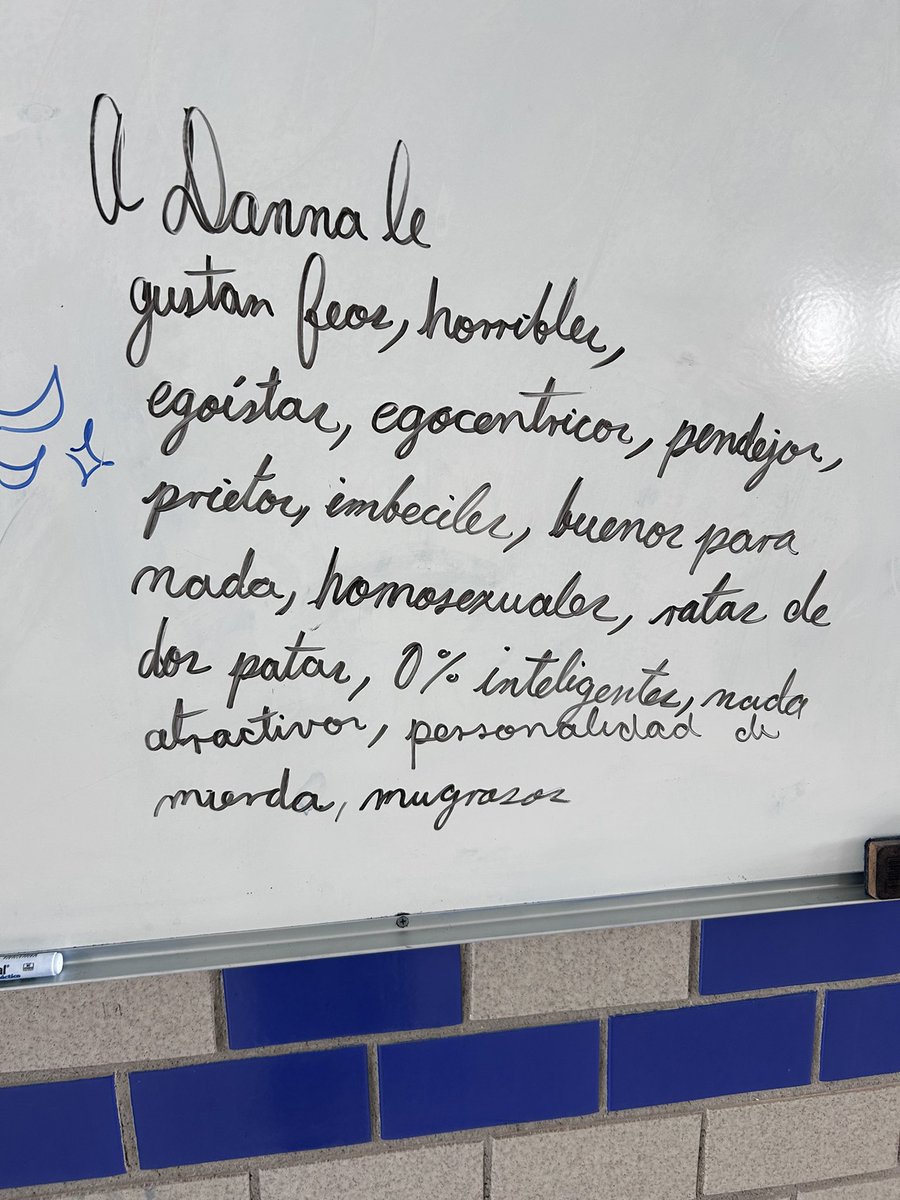 A Danna le
gustan feos, horribles,
egoístas, egocentricos, pendejos,
prietos, imbeciles, buenos para
nada, homosexuales, ratas de
dos patas, 0% inteligentes, nada
atractivos, personalidad de
mierda, mugrosos